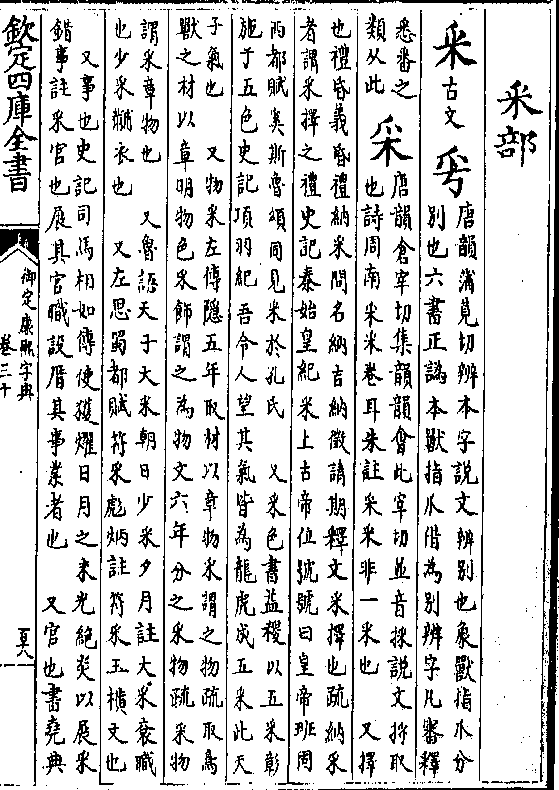 釆部
釆
古文
唐韻蒲莧切辨本字說文辨別也象獸指爪分
別也六書正譌本獸指爪借為別辨字凡審釋
悉番之
類从此
采
唐韻倉宰切集韻韻會此宰切並音採說文捋取
也詩周南采采卷耳朱註采采非一采也　又擇
也禮昏義昏禮納采問名納吉納徵請期釋文采擇也疏納采
者謂采擇之禮史記秦始皇紀采上古帝位號號曰皇帝班固
兩都賦奚斯魯頌同見采於孔氏　又采色書益稷以五采彰
施于五色史記項羽紀吾令人望其氣皆為龍虎成五采此天
子氣也　又物采左傳隱五年取材以章物采謂之物疏取鳥
獸之材以章明物色采飾謂之為物文六年分之采物疏采物
謂采章物也　又魯語天子大采朝日少采夕月註大采袞職
也少采黼衣也　又左思蜀都賦符采彪炳註符采玉橫文也
又事也史記司馬相如傳使獲燿日月之末光絕炎以展采
錯事註采官也展其官職設厝其事業者也　又官也書堯典
欽定四庫全書
御定康熙字典
卷三十